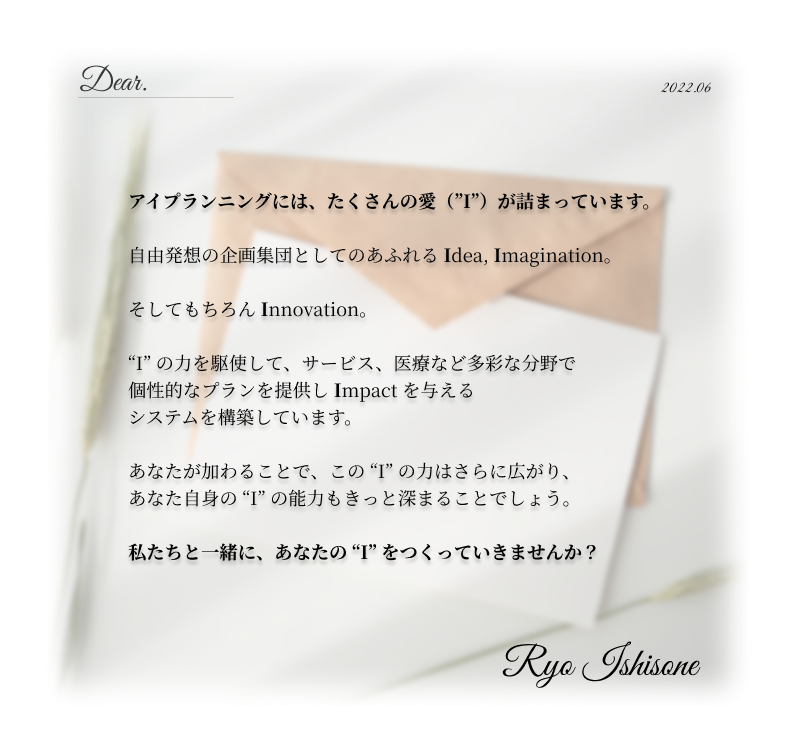 Dear.
2022.06
アイプランニングには、たくさんの愛（”I”）が詰まっています。
自由発想の企画集団としてのあふれる Idea, Imagination。
そしてもちろん Innovation。
“I” の力を駆使して、サービス、医療など多彩な分野で
個性的なプランを提供し Impact を与える
システムを構築しています。
あなたが加わることで、この “I” の力はさらに広がり、
あなた自身の “I” の能力もきっと深まることでしょう。
私たちと一緒に、あなたの “I” をつくっていきませんか？
Ryo Ishisone